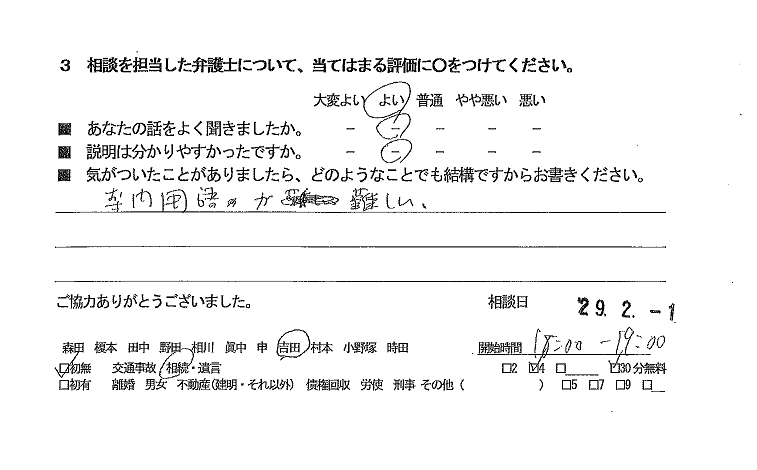 3 相談を担当した弁護士について、当てはまる評価に〇をつけてください。
大変よい よい 普通 やや悪い 悪い
■ あなたの話をよく聞きましたか。 － － － － －
■ 説明は分かりやすかったですか。 － － － － －
■ 気がついたことがありましたら、どのようなことでも結構ですからお書きください。
内用語 が 難しい、
ご協力ありがとうございました。 相談日 29. 2. -1
森田 榎本 田中 野田 相川 眞中 申 吉田 村本 小野塚 時田 開始時間 18:00 -19:00
☑初無 交通事故 相続・遺言 □2 ☑4 □____ ☑30分無料
□初有 離婚 男女 不動産(建明・それ以外) 債権回収 労使 刑事 その他 ( ) □5 □7 □9 □__